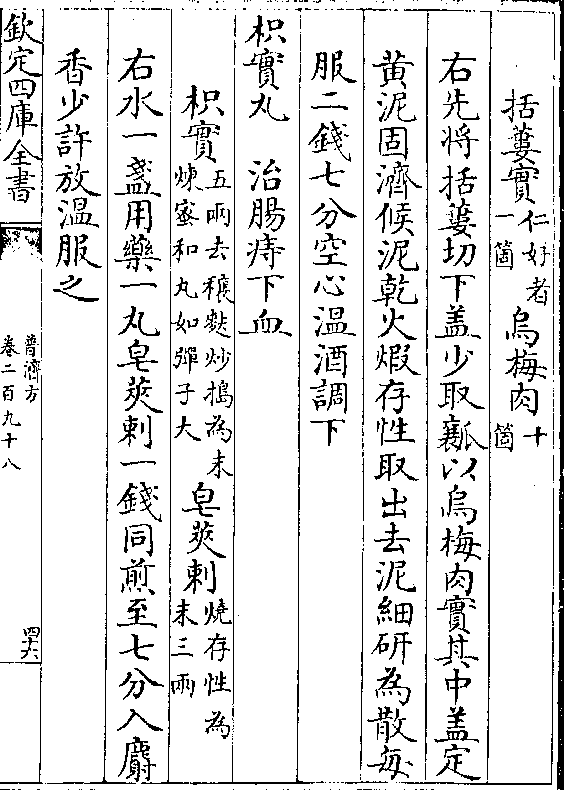 括蔞實仁好者一箇烏梅肉十箇
右先將括蔞切下盖少取瓤以烏梅肉實其中盖定
黄泥固濟候泥乾火煆存性取出去泥細研為散每
服二錢七分空心温酒調下
枳實丸 治腸痔下血
枳實五兩去穰麩炒搗為末煉蜜和丸如彈子大皂莢刺燒存性為末三兩
右水一盞用藥一丸皂莢刺一錢同煎至七分入麝
香少許放温服之
欽定四庫全書
普濟方
卷二百九十八
四十六